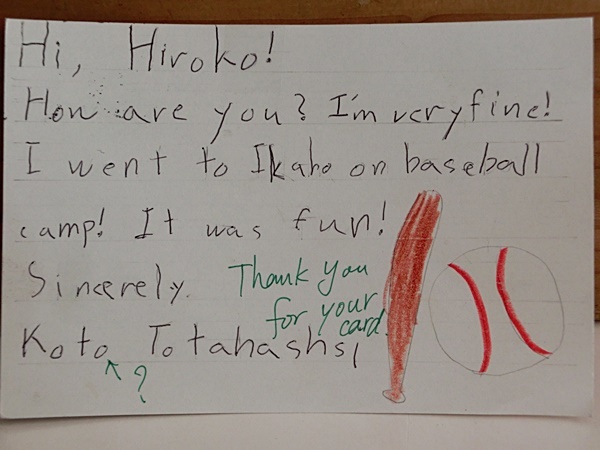 Hi, Hiroko!
How are you? I'm very fine!
I went to Ikaho on baseball
camp! It was fun!
Sincerely.
Thank you
for your
card.
Koto Totahashsi
?